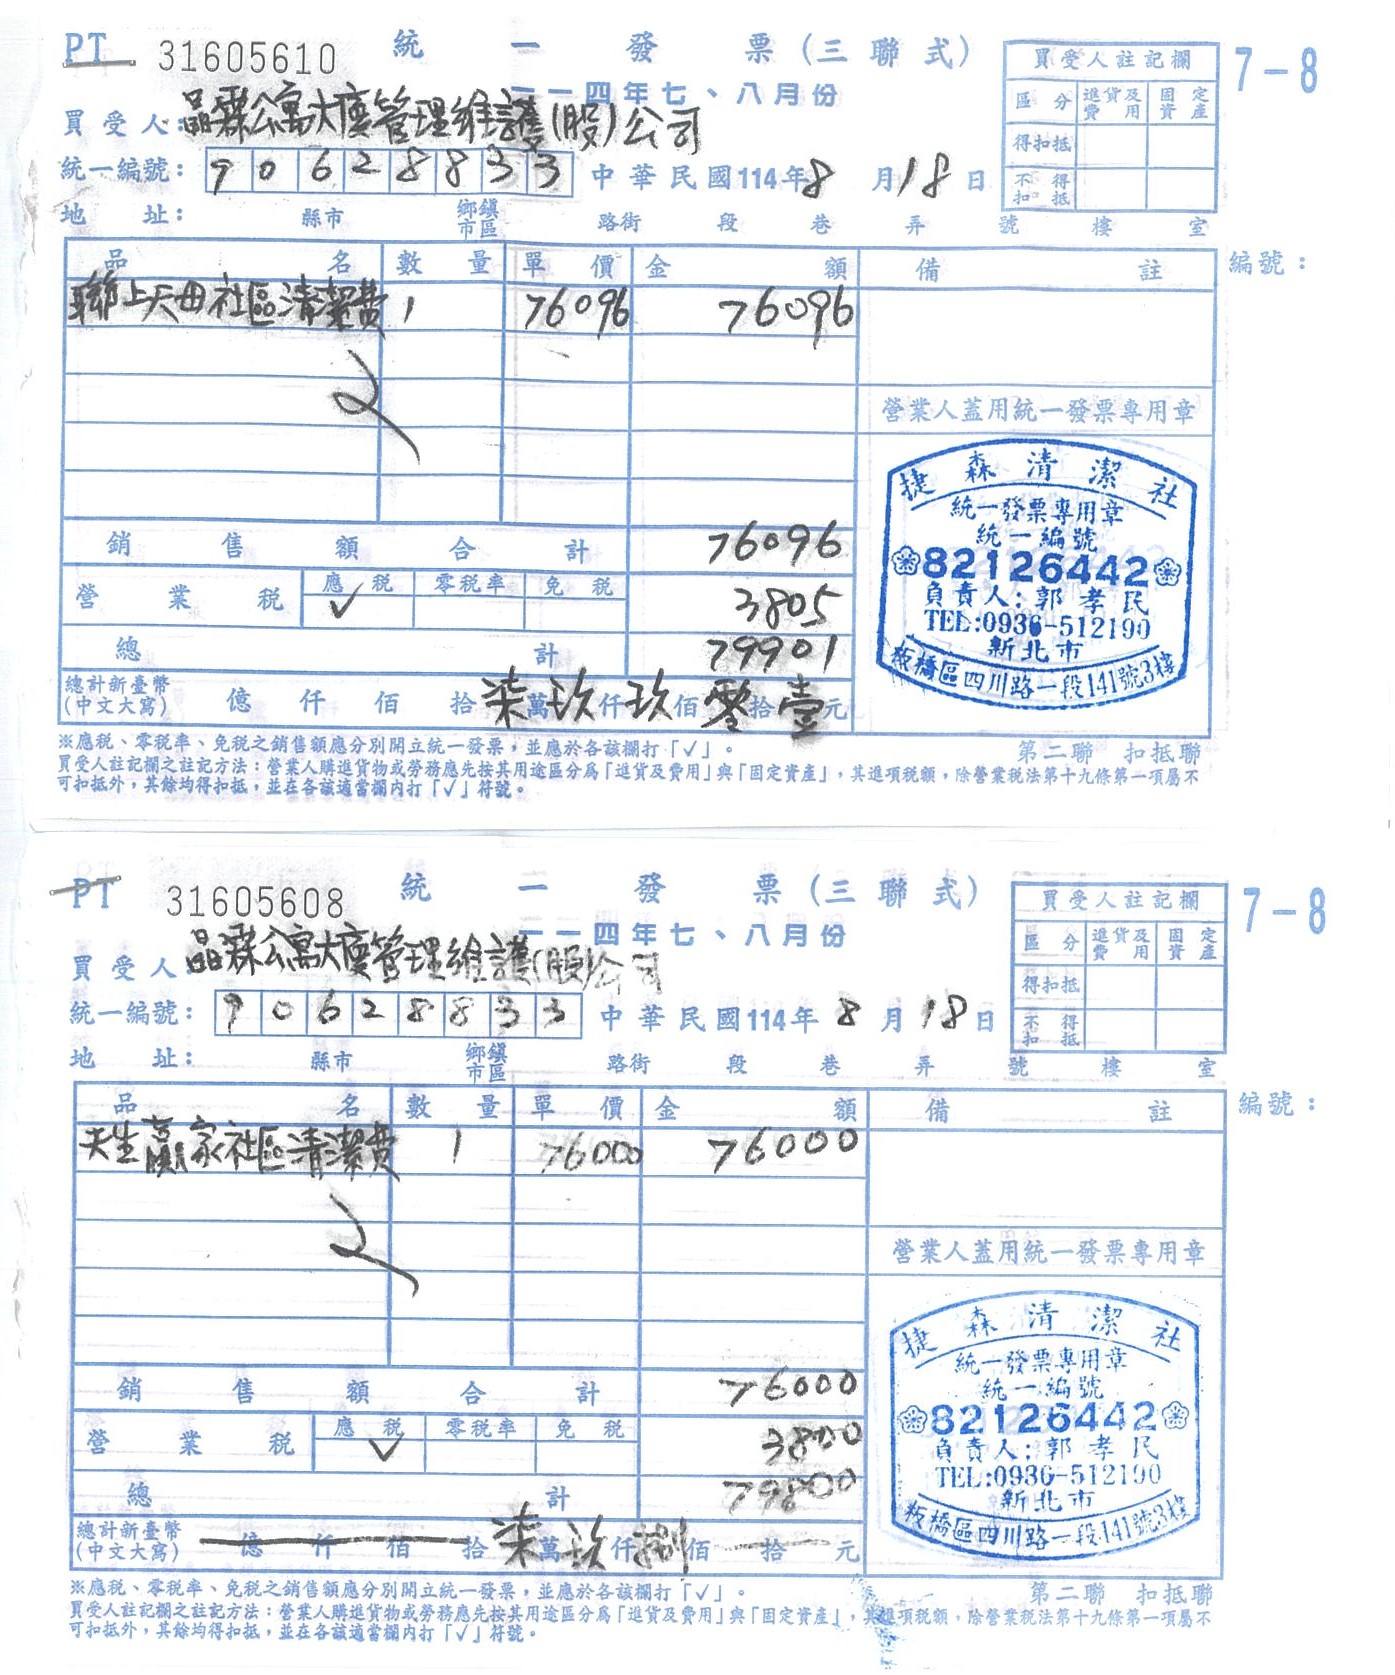 PT 31605610 統一發票(三聯式) 7-8
一一四年七、八月份
買受人註記欄
區分 進貨及費用 固定資產
得扣抵
不得扣抵
買受人: 晶霖公寓大廈管理維護(股)公司
統一編號: 90628833 中華民國114年8月18日
地址: 縣市 鄉鎮市區 路街 段 巷 弄 號 樓 室
品名 數量 單價 金額 備註 編號:
聯上天母社區清潔費 1 76096 76096
營業人蓋用統一發票專用章
捷森清潔社
統一發票專用章
統一編號
82126442
負責人:郭孝民
TEL:0936-512190
新北市
板橋區四川路一段141號3樓
銷售額合計 76096
營業稅 應稅 ✓ 零稅率 免稅 3805
總計 79901
總計新臺幣(中文大寫) 億 仟 佰 拾 柒萬玖仟玖佰零拾壹元
※應稅、零稅率、免稅之銷售額應分別開立統一發票,並應於各該欄打「✓」。 第二聯 扣抵聯
買受人註記欄之註記方法:營業人購進貨物或勞務應先按其用途區分為「進貨及費用」與「固定資產」,其進項稅額,除營業稅法第十九條第一項屬不
可扣抵外,其餘均得扣抵,並在各該適當欄內打「✓」符號。
PT 31605608 統一發票(三聯式) 7-8
一一四年七、八月份
買受人註記欄
區分 進貨及費用 固定資產
得扣抵
不得扣抵
買受人: 晶霖公寓大廈管理維護(股)公司
統一編號: 90628833 中華民國114年8月18日
地址: 縣市 鄉鎮市區 路街 段 巷 弄 號 樓 室
品名 數量 單價 金額 備註 編號:
天生贏家社區清潔費 1 76000 76000
營業人蓋用統一發票專用章
捷森清潔社
統一發票專用章
統一編號
82126442
負責人:郭孝民
TEL:0936-512190
新北市
板橋區四川路一段141號3樓
銷售額合計 76000
營業稅 應稅 ✓ 零稅率 免稅 3800
總計 79800
總計新臺幣(中文大寫) 億 仟 佰 拾 柒萬玖仟捌佰 拾 元
※應稅、零稅率、免稅之銷售額應分別開立統一發票,並應於各該欄打「✓」。 第二聯 扣抵聯
買受人註記欄之註記方法:營業人購進貨物或勞務應先按其用途區分為「進貨及費用」與「固定資產」,其進項稅額,除營業稅法第十九條第一項屬不
可扣抵外,其餘均得扣抵,並在各該適當欄內打「✓」符號。